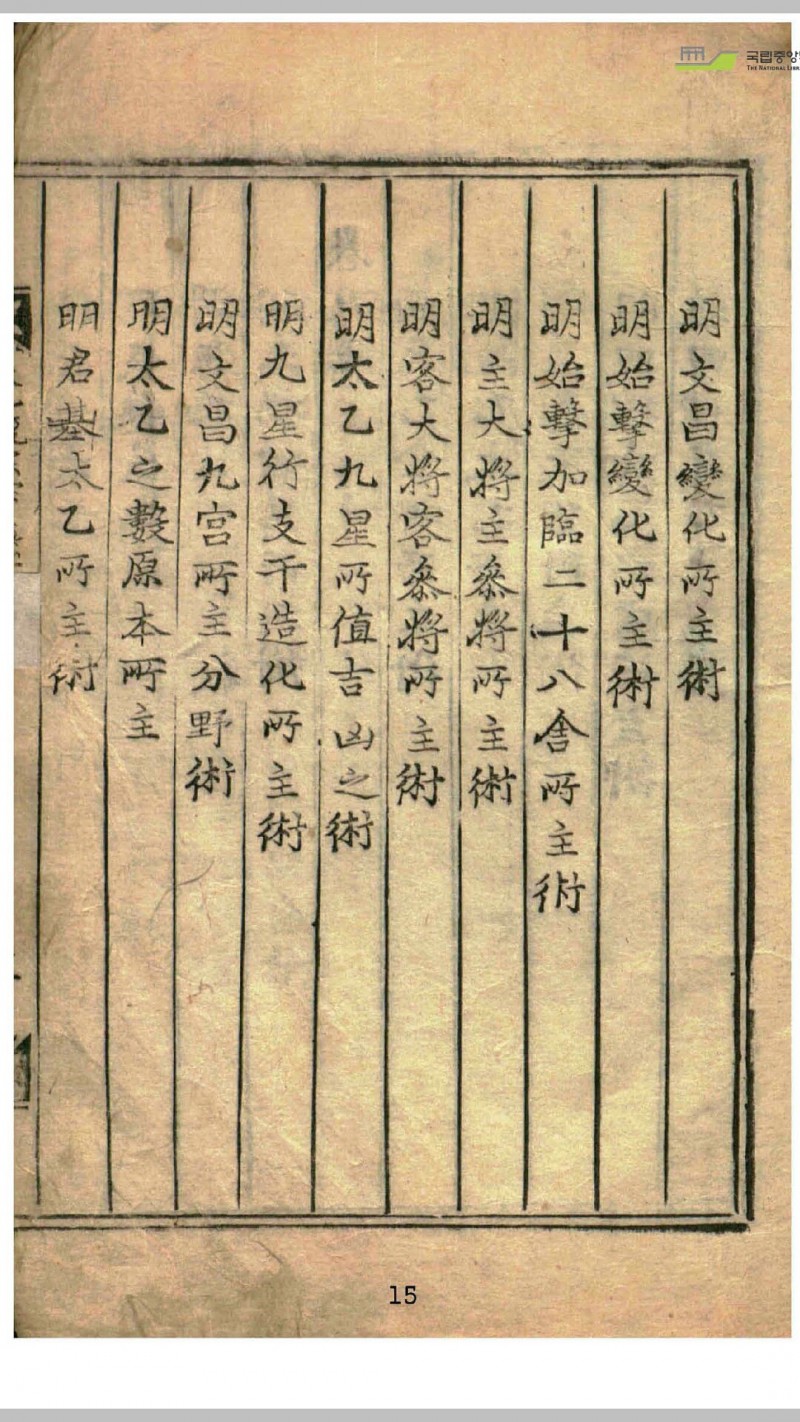 국립중앙
THE NATIONAL LIBR
明文昌變化所主術
明始擊變化所主術
明始擊加臨二十八舍所主術
明主大將主叅將所主術
明客大將客叅將所主術
明太乙九星所值吉凶之術
明九星行支干造化所主術
明文昌九宮所主分野術
明太乙之數原本所主
明君基太乙所主術
15